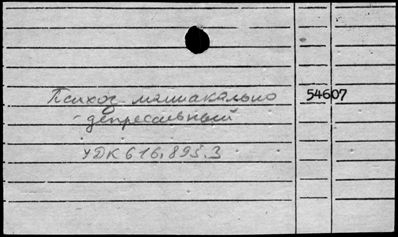 Психоз маниакально 54607
- депрессивный
УДК 616.895.3